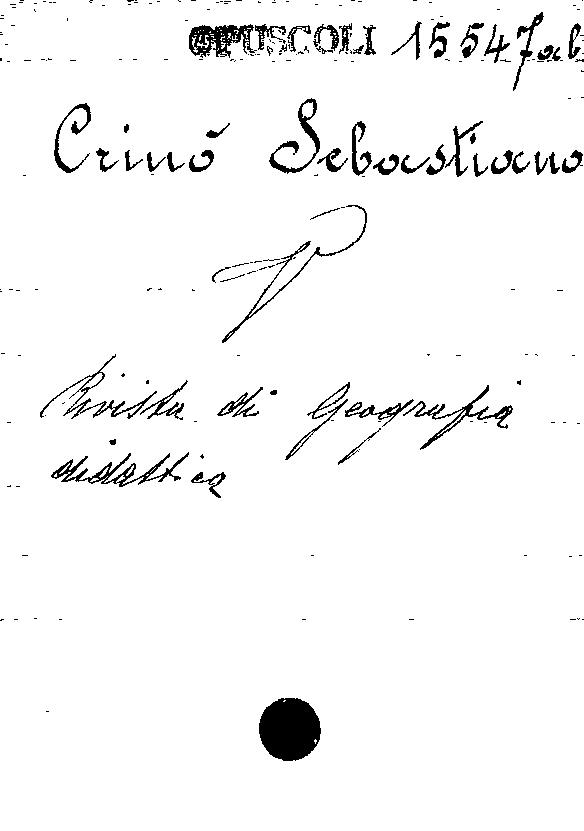 OPUSCOLI 15547 ab
Crinò Sebastiano
V
Rivista di Geografia
didattica